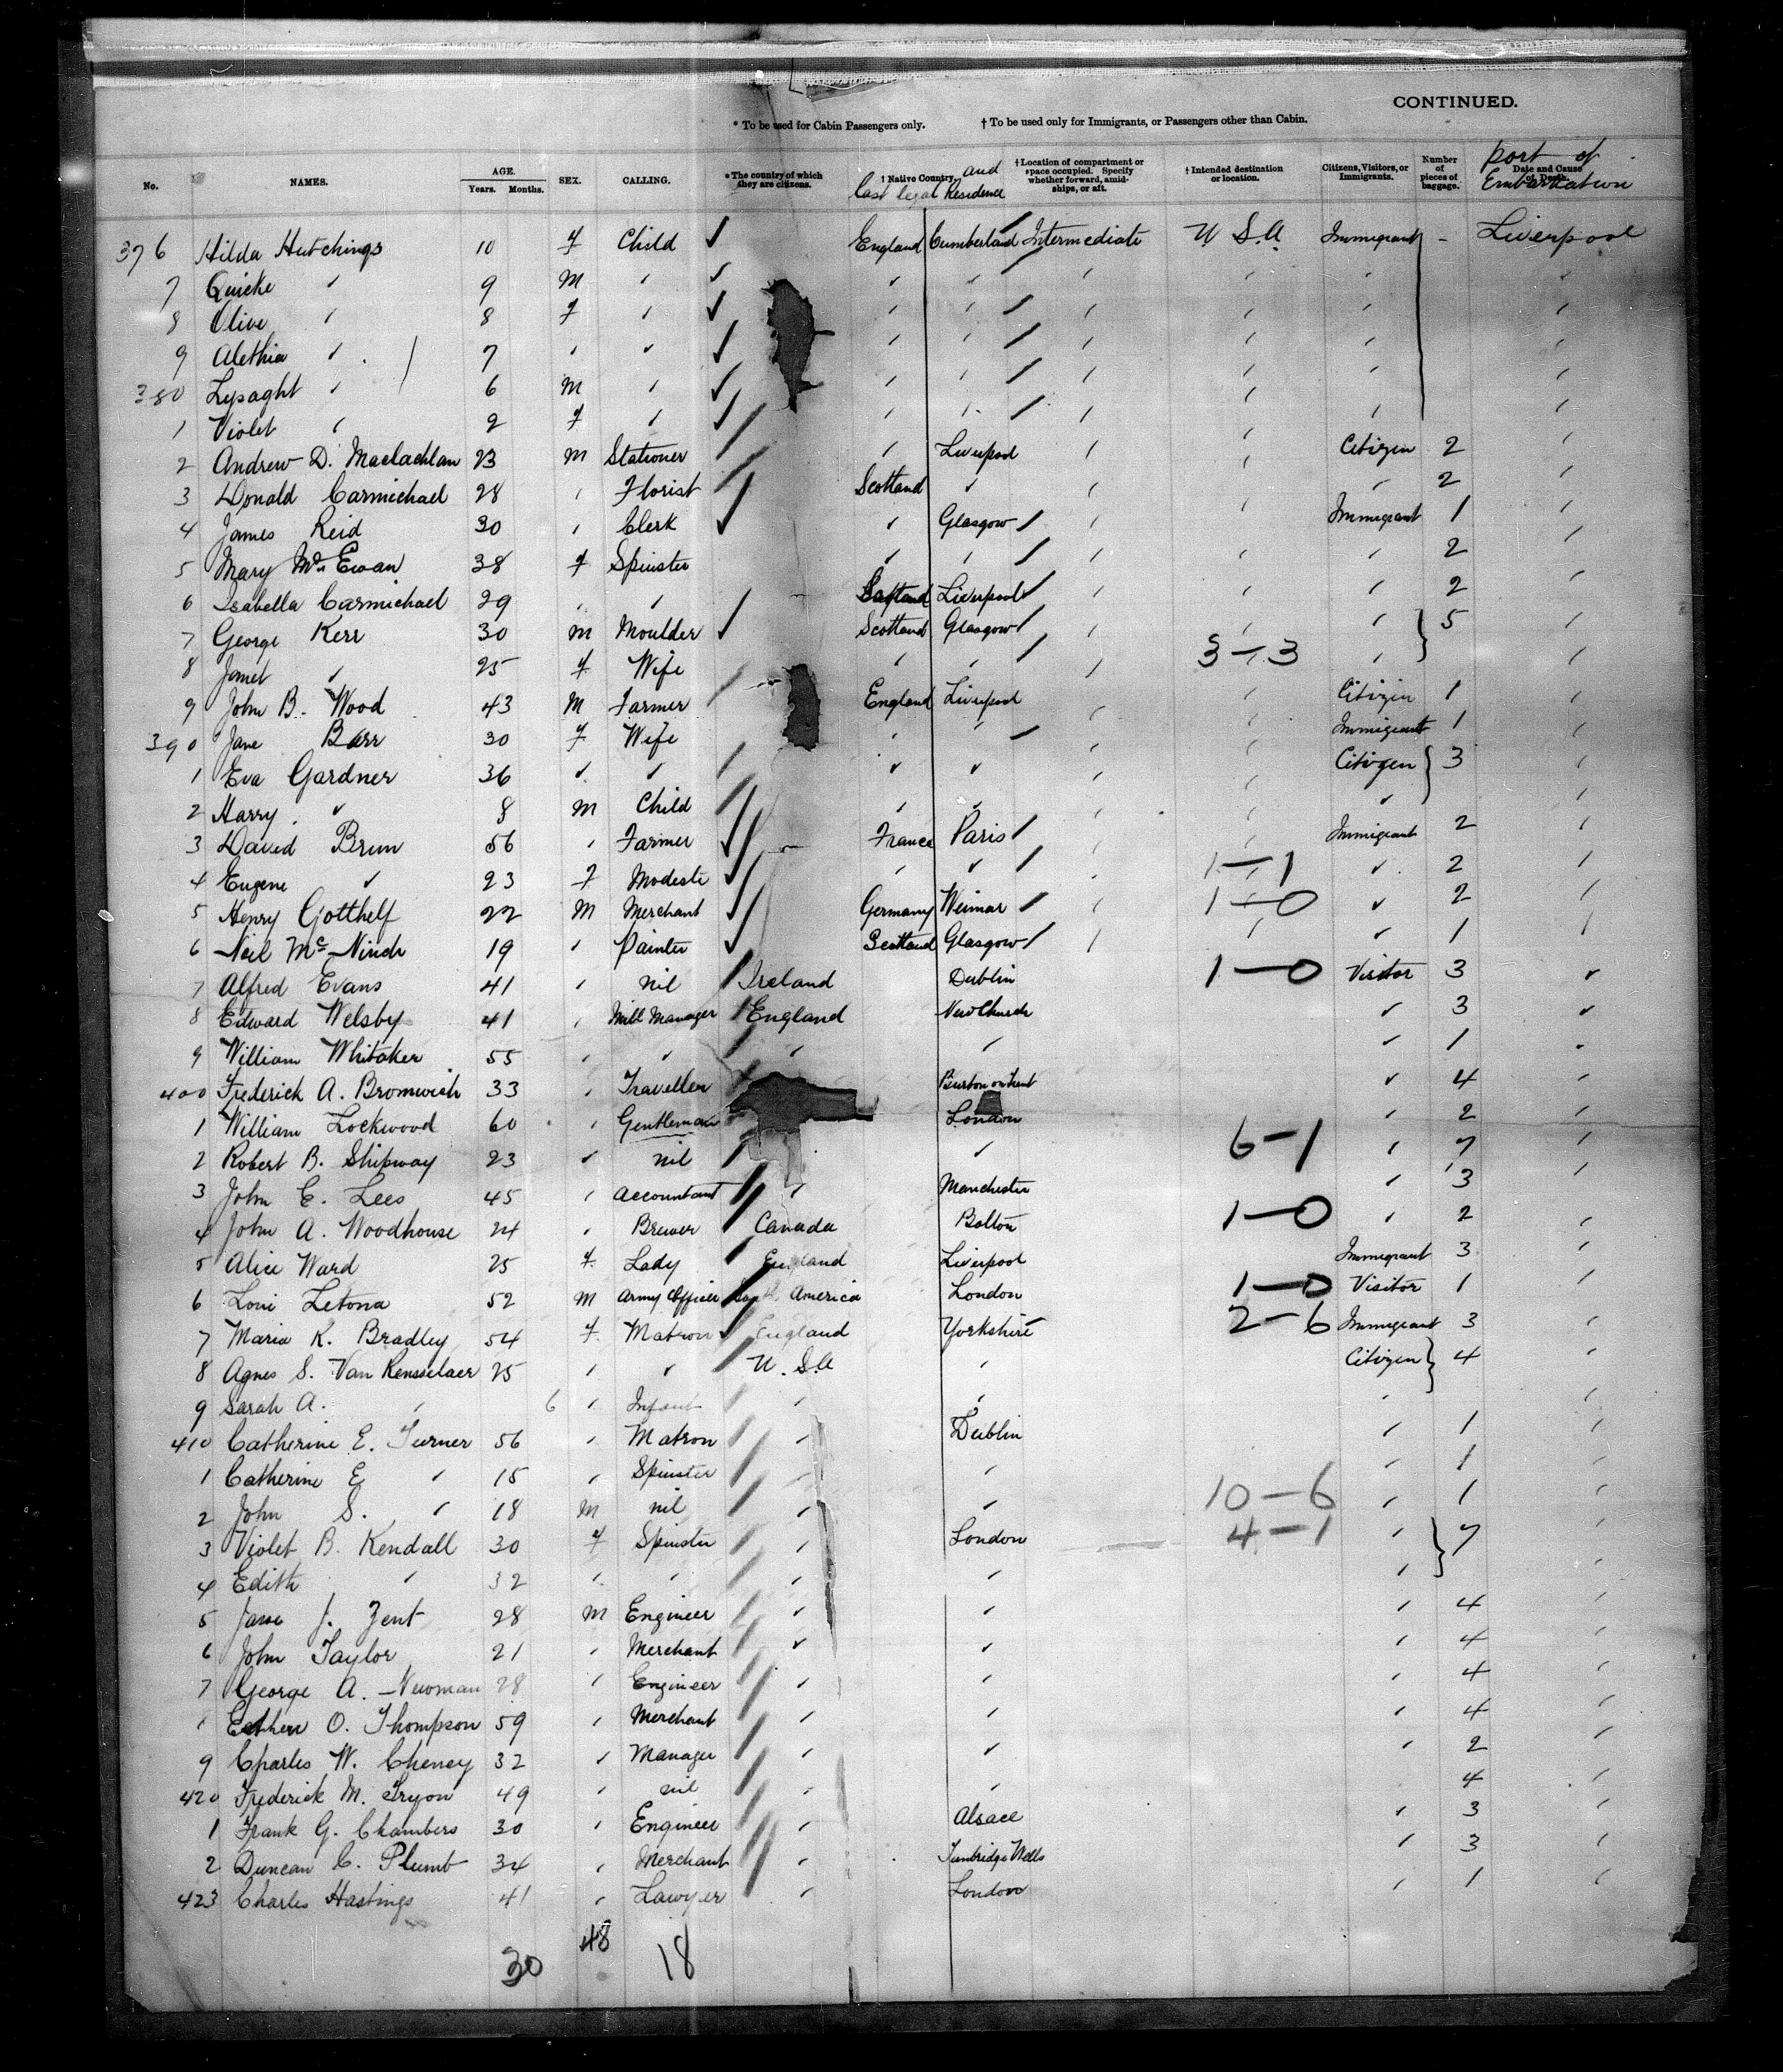 CONTINUED.
* To be used for Cabin Passengers only. † To be used only for Immigrants, or Passengers other than Cabin.
No. NAMES. AGE. Years. Months. SEX. CALLING. * The country of which they are citizens. † Native Country and last legal Residence † Location of compartment or space occupied. Specify whether forward, amidships, or aft. † Intended destination or location. Citizens, Visitors, or Immigrants. Number of pieces of baggage. Date and Cause of Death. Port of Embarkation
376 Hilda Hutchings 10 F Child ✓ England Cumberland Intermediate U S.A. Immigrant - Liverpool
7 Quicke " 9 M " ✓ " " " " " "
8 Olive " 8 F " ✓ " " " " " "
9 Alethia " 7 " " ✓ " " " " " "
380 Lysaght " 6 M " ✓ " " " " " "
1 Violet " 2 F " ✓ " " " " " "
2 Andrew D. Maclachlan 23 M Stationer " Liverpool " " Citizen 2 "
3 Donald Carmichael 28 " Florist Scotland " " " " 2 "
4 James Reid 30 " Clerk ✓ " Glasgow " " Immigrant 1 "
5 Mary McEwan 38 F Spinster " " " " " 2 "
6 Isabella Carmichael 29 " " Liverpool " " " 2 "
7 George Kerr 30 M Moulder ✓ Scotland Glasgow " " " 5 "
8 Janet " 25 F Wife " " " 3-3 " "
9 John B. Wood 43 M Farmer England Liverpool " Citizen 1 "
390 Jane Barr 30 F Wife " " " " Immigrant 1 "
1 Eva Gardner 36 " " " " " " Citizen 3 "
2 Harry " 8 M Child " " " " " "
3 David Brun 56 " Farmer France Paris " " Immigrant 2 "
4 Eugene " 23 F Modeste " " " 1-1 " 2 "
5 Henry Gotthelf 22 M Merchant Germany Weimar " 1-0 " 2 "
6 Neil McNinch 19 " Painter Scotland Glasgow " " " 1 "
7 Alfred Evans 41 " nil Ireland Dublin 1-0 Visitor 3 "
8 Edward Welsby 41 " Mill Manager England New Church " 3 "
9 William Whitaker 55 " " " " " 1 "
400 Frederick A. Bromwich 33 " Traveller Burton on Trent " 4 "
1 William Lockwood 60 " Gentleman London " 2 "
2 Robert B. Shipway 23 " nil " 6-1 " 7 "
3 John E. Lees 45 " Accountant " Manchester " 3 "
4 John A. Woodhouse 24 " Brewer Canada Bolton 1-0 " 2 "
5 Alice Ward 25 F Lady England Liverpool Immigrant 3 "
6 Letona 52 M Army Officer America London 1-0 Visitor 1 "
7 Maria K. Bradley 54 F Matron England Yorkshire 2-6 Immigrant 3 "
8 Agnes S. Van Rensselaer 25 " " U. S.A " Citizen 4 "
9 Sarah A. " 6 " Infant " " " "
410 Catherine E. Turner 56 " Matron " Dublin " 1 "
1 Catherine E " 15 " Spinster " " " 1 "
2 John S. " 18 M nil " " 10-6 " 1 "
3 Violet B. Kendall 30 F Spinster " London 4-1 " 7 "
4 Edith " 32 " " " " " "
5 J. Zent 28 M Engineer " " " 4 "
6 John Taylor 21 " Merchant " " " 4 "
7 George A. Newman 28 " Engineer " " " 4 "
O. Thompson 59 " Merchant " " " 4 "
9 Charles W. Cheney 32 " Manager " " " 2 "
420 Frederick M. Tryon 49 " nil " " 4 "
1 Frank G. Chambers 30 " Engineer " Alsace " 3 "
2 Duncan C. Plumb 34 " Merchant " Tunbridge Wells " 3 "
423 Charles Hastings 41 " Lawyer " London " 1 "
30 48 18